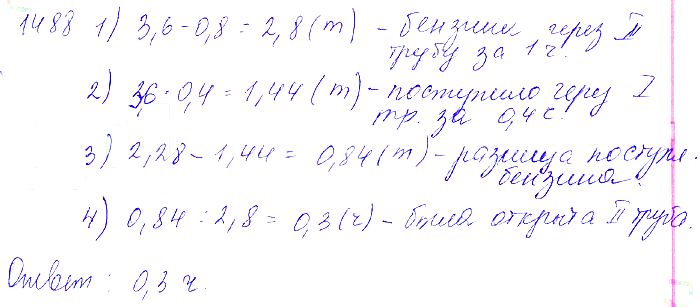 1488 1) 3,6 - 0,8 = 2,8 (т) - бензина через II
трубу за 1 ч.
2) 3,6 · 0,4 = 1,44 (т) - поступило через I
тр. за 0,4 с.
3) 2,28 - 1,44 = 0,84 (т) - разница поступл.
бензина.
4) 0,84 : 2,8 = 0,3 (ч) - была открыта II труба.
Ответ: 0,3 ч.